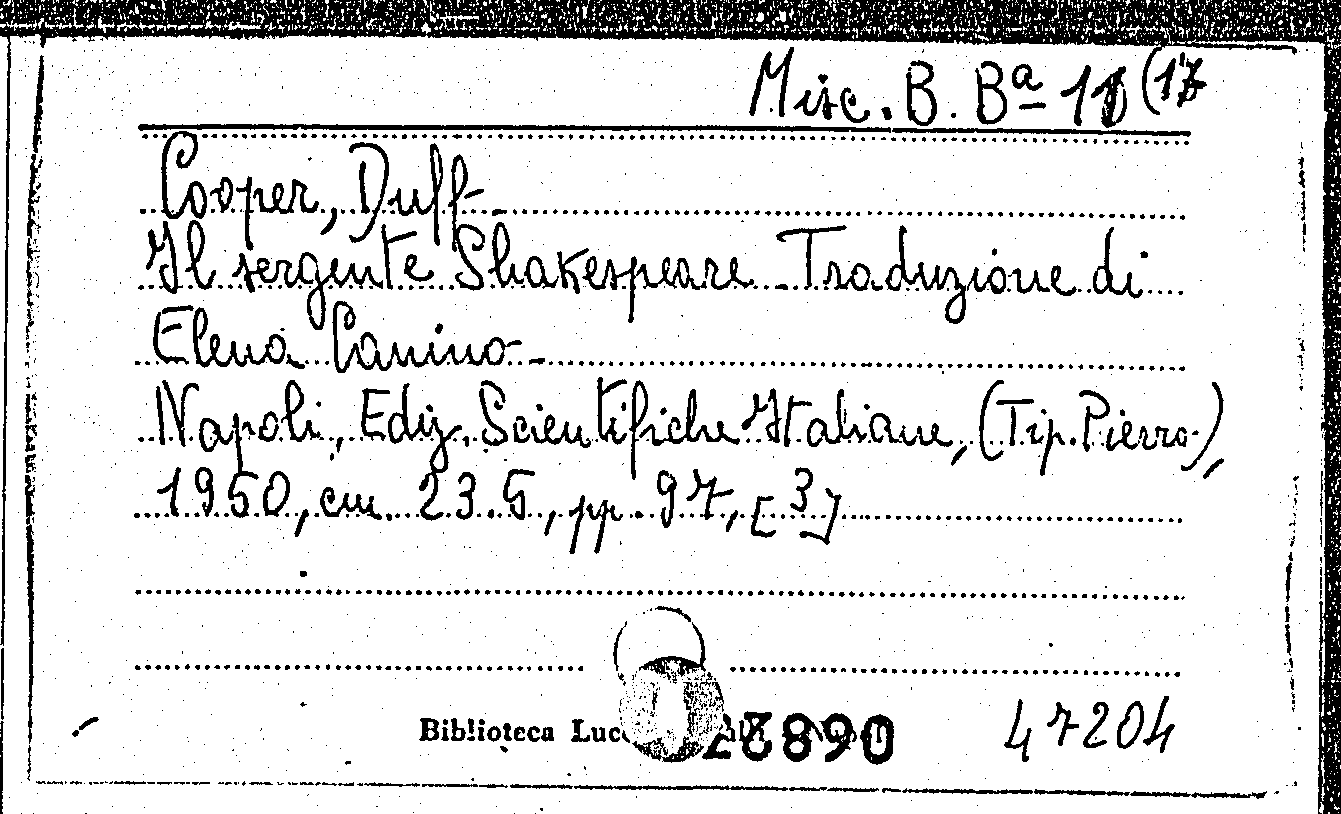 Misc. B. Bª 11 (17
Cooper, Duff-
Il sergente Shakespeare. Traduzione di
Elena Canino-
Napoli, Ediz. Scientifiche Italiane, (Tip. Pierro),
1950, cm. 23.5, pp. 97, [3]
Biblioteca 23890 47204